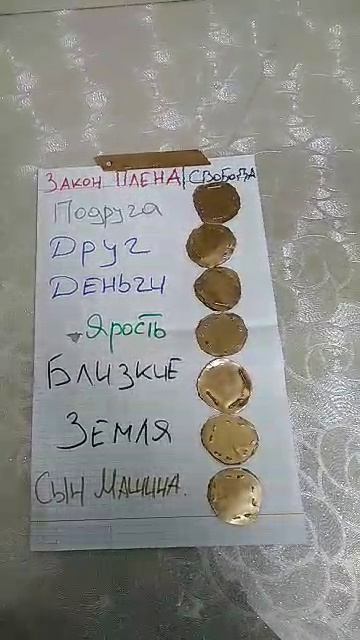 ЗАКОН ПЛЕНА|СВОБОДА
Подруга
Друг
Деньги
Ярость
БЛИЗКИЕ
ЗЕМЛЯ
Сын Машина.